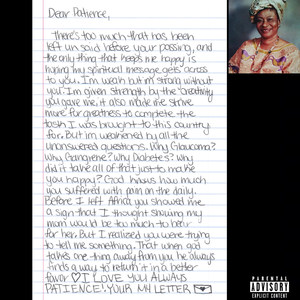 Dear Patience,
There's too much that has been
left un said before your passing, and
the only thing that keeps me happy is
hoping my spiritual message gets across
to you. I'm weak but I'm strong without
you. I'm given strength by the "creativity"
you gave me, it also made me strive
more for greatness to complete the
task I was brought to this country
for. But I'm weakened by all the
unanswered questions. Why Glaucoma?
Why Gangrene? Why Diabetes? Why
did it take all of that just to make
you happy? God knows how much
you suffered with pain on the daily.
Before I left Africa you showed me
a sign that I thought showing my
mom would be too much to bear
for her. But I realised you were trying
to tell me something. That when god
takes one thing away from you he always
finds a way to return it in a better
favor ♡ I LOVE YOU ALWAYS
PATIENCE! YOUR MY LETTER
PARENTAL
ADVISORY
EXPLICIT CONTENT